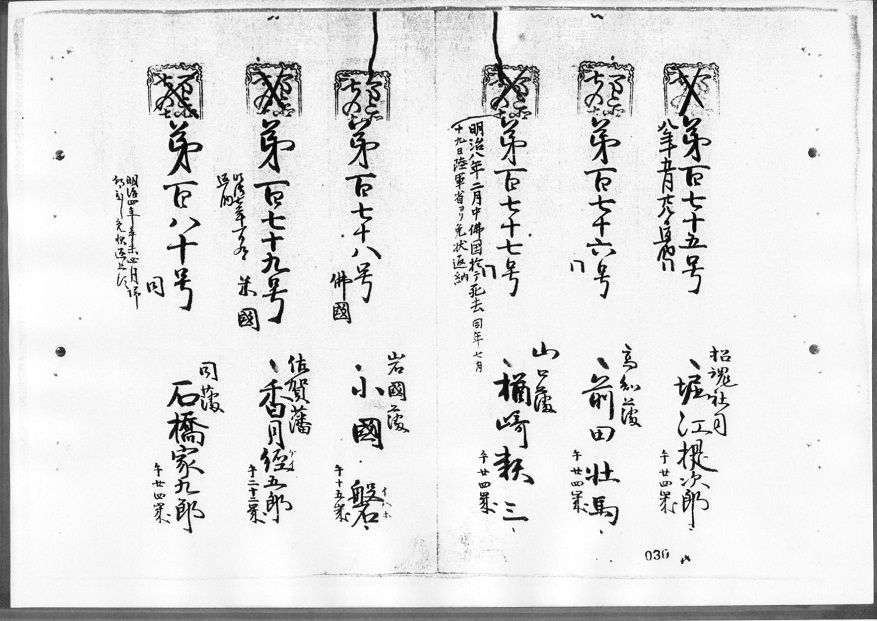 第百七十五号
招魂社司
堀江提次郎
午廿四歳
第百七十六号
高知藩
前田壮馬
午廿四歳
明治八年二月中佛國於テ死去 同年七月
十九日陸軍省ヨリ免状返納
第百七十七号
山口藩
楢崎頼三
午廿四歳
第百七十八号
佛國
岩國藩
小國 磐
午十五歳
第百七十九号
米國
佐賀藩
香月経五郎
午二十二歳
第百八十号
同
同藩
石橋家九郎
午廿四歳
030